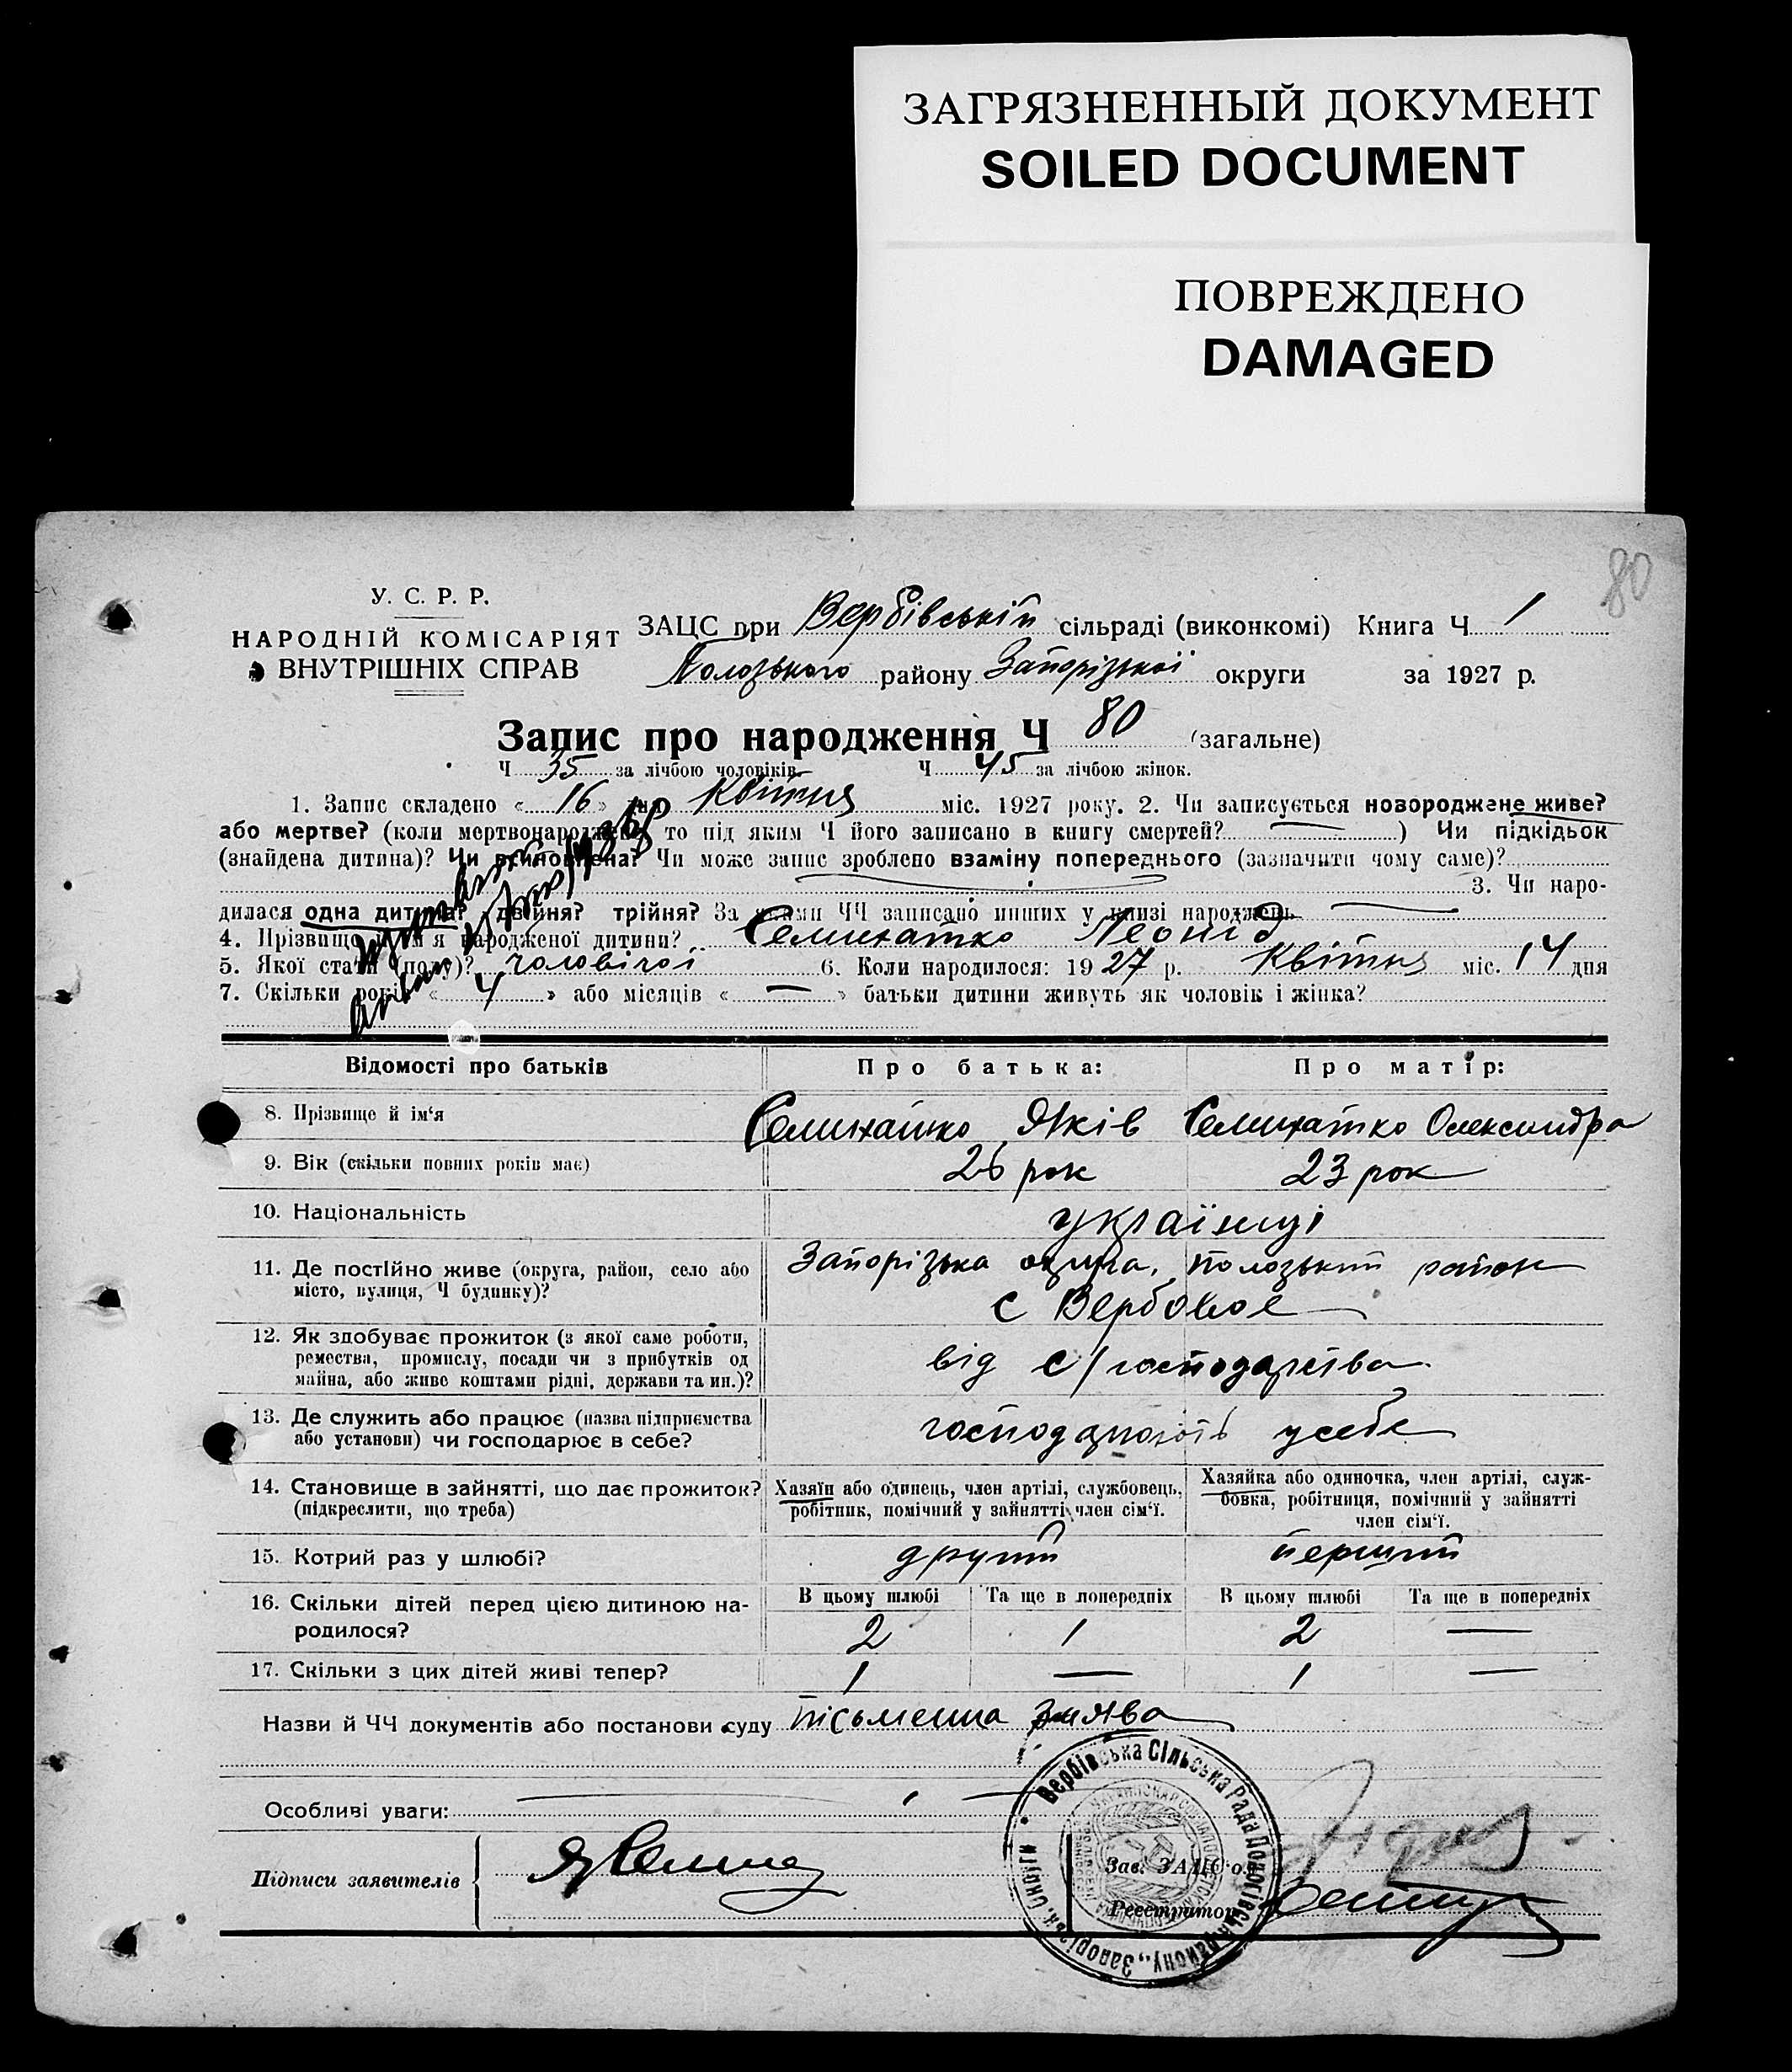 ЗАГРЯЗНЕННЫЙ ДОКУМЕНТ
SOILED DOCUMENT
ПОВРЕЖДЕНО
DAMAGED
80
У. С. Р. Р.
НАРОДНІЙ КОМІСАРІЯТ
ВНУТРІШНІХ СПРАВ
ЗАЦС при Вербівській сільраді (виконкомі) Книга Ч 1
Полозького району Запорізької округи за 1927 р.
Запис про народження Ч 80 (загальне)
Ч 35 за лічбою чоловіків Ч 45 за лічбою жінок.
1. Запис складено « 16 » дня Квітня міс. 1927 року. 2. Чи записується новороджене живе?
або мертве? (коли мертвонароджене, то під яким Ч його записано в книгу смертей? — ) Чи підкідьок
(знайдена дитина)? Чи всиновлена? Чи може запис зроблено взаміну попереднього (зазначити чому саме)?
3. Чи наро-
дилася одна дитина? двійня? трійня? За якими ЧЧ записано инших у книзі народжень —
4. Прізвище й ім'я народженої дитини? Семихатко Леонід
5. Якої стати (полу)? чоловічої 6. Коли народилося: 1927 р. Квітня міс. 14 дня
7. Скільки років « 4 » або місяців « — » батьки дитини живуть як чоловік і жінка?
Відомості про батьків Про батька: Про матір:
8. Прізвище й ім‘я Семихатко Яків Семихатко Олександра
9. Вік (скільки повних років має) 26 рок 23 рок
10. Національність українці
11. Де постійно живе (округа, район, село або Запорізька округа, полозький район
місто, вулиця, Ч будинку)? с Вербовое
12. Як здобуває прожиток (з якої саме роботи,
ремества, промислу, посади чи з прибутків од від с/господарства
майна, або живе коштами рідні, держави та ин.)?
13. Де служить або працює (назва підприємства господарюють у себе
або установи) чи господарює в себе?
14. Становище в зайнятті, що дає прожиток? Хазяїн або одинець, член артілі, службовець, Хазяйка або одиночка, член артілі, служ-
(підкреслити, що треба) робітник, помічний у зайнятті член сім‘ї. бовка, робітниця, помічний у зайнятті
член сім‘ї.
15. Котрий раз у шлюбі? другий перший
16. Скільки дітей перед цією дитиною на- В цьому шлюбі Та ще в попередніх В цьому шлюбі Та ще в попередніх
родилося? 2 1 2 —
17. Скільки з цих дітей живі тепер? 1 — 1 —
Назви й ЧЧ документів або постанови суду пісьменна заява
Особливі уваги:
Підписи заявителів
Зав. ЗАЦС'ом
Реєстратор
Вербівська Сільська Рада Пологівськ. району, Запорізьк. Округи